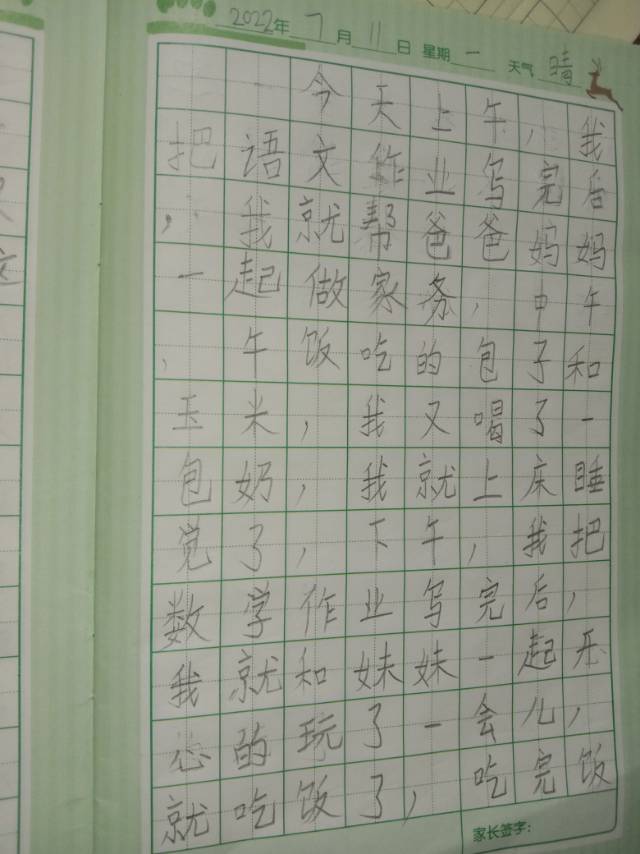 2022年7月11日 星期一 天气 晴
今天上午,我
把语文作业写完后
,我就帮爸爸妈妈
一起做家务,中午
,午饭吃的包子和
玉米,我又喝了一
包奶,我就上床睡
觉了,下午,我把
数学作业写完后,
我就和妹妹一起开
心的玩了一会儿,
就吃饭了,吃完饭
家长签字: